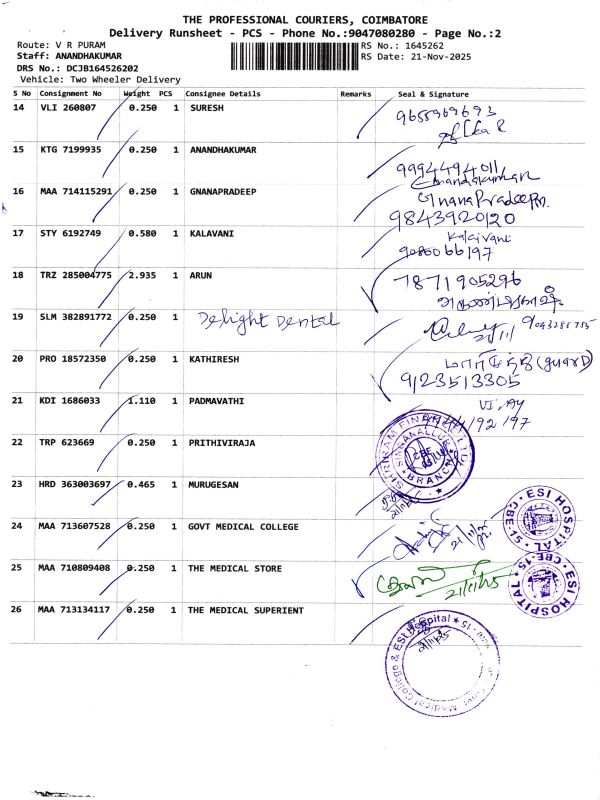 THE PROFESSIONAL COURIERS, COIMBATORE
Delivery Runsheet - PCS - Phone No.:9047080280 - Page No.:2
Route: V R PURAM RS No.: 1645262
Staff: ANANDHAKUMAR RS Date: 21-Nov-2025
DRS No.: DCJB164526202
Vehicle: Two Wheeler Delivery
S No Consignment No Weight PCS Consignee Details Remarks Seal & Signature
14 VLI 260807 0.250 1 SURESH 9655969693
15 KTG 7199935 0.250 1 ANANDHAKUMAR 9994494011
Emandakumar
16 MAA 714115291 0.250 1 GNANAPRADEEP GnanaPradeep
9843920120
17 STY 6192749 0.580 1 KALAVANI Kalaivani
9080066197
18 TRZ 285004775 2.935 1 ARUN 7871905296
19 SLM 382891772 0.250 1 Delight Dental 21/11
20 PRO 18572350 0.250 1 KATHIRESH (guard)
9123513305
21 KDI 1686033 1.110 1 PADMAVATHI
22 TRP 623669 0.250 1 PRITHIVIRAJA SHRIRAM FINANCE LTD. SINGANALLUR CBE BRANCH
23 HRD 363003697 0.465 1 MURUGESAN
24 MAA 713607528 0.250 1 GOVT MEDICAL COLLEGE ESI HOSPITAL CBE-15
25 MAA 710809408 0.250 1 THE MEDICAL STORE 21/11/25 ESI HOSPITAL CBE-15
26 MAA 713134117 0.250 1 THE MEDICAL SUPERIENT Govt Medical College & ESI Hospital